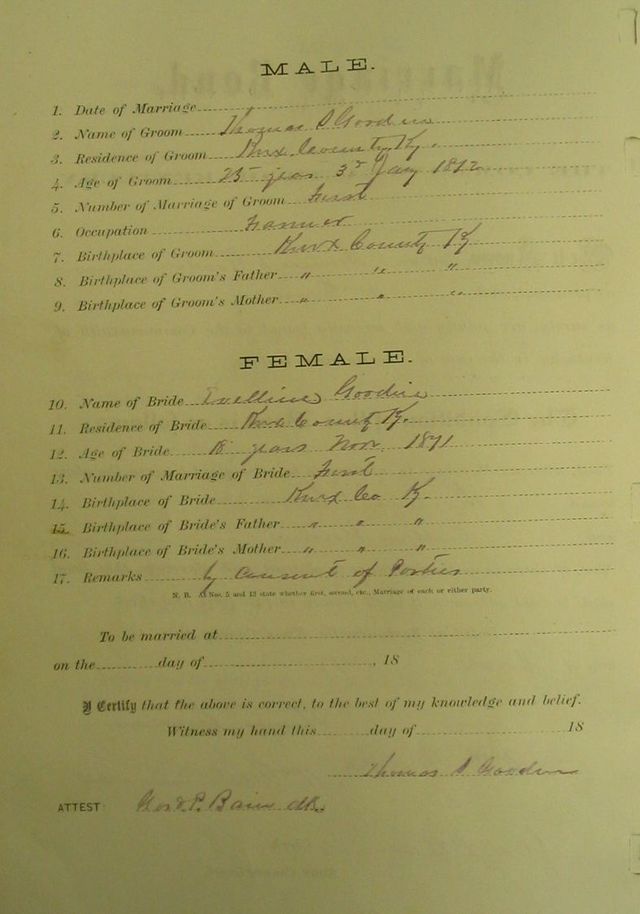 MALE.
1. Date of Marriage
2. Name of Groom Thomas S Goodin
3. Residence of Groom Knox County Ky.
4. Age of Groom 23 years 3d Jany 1872
5. Number of Marriage of Groom First
6. Occupation Farmer
7. Birthplace of Groom Knox County Ky
8. Birthplace of Groom's Father " " "
9. Birthplace of Groom's Mother " " "
FEMALE.
10. Name of Bride Evelline Goodin
11. Residence of Bride Knox County Ky.
12. Age of Bride 18 years Nov. 1871
13. Number of Marriage of Bride First
14. Birthplace of Bride Knox Co Ky.
15. Birthplace of Bride's Father " " "
16. Birthplace of Bride's Mother " " "
17. Remarks by consent of Parties
N. B. At Nos. 5 and 13 state whether first, second, etc., Marriage of each or either party.
To be married at
on the day of , 18
I Certify that the above is correct, to the best of my knowledge and belief.
Witness my hand this day of 18
Thomas S Goodin
ATTEST: P. Bain clk.